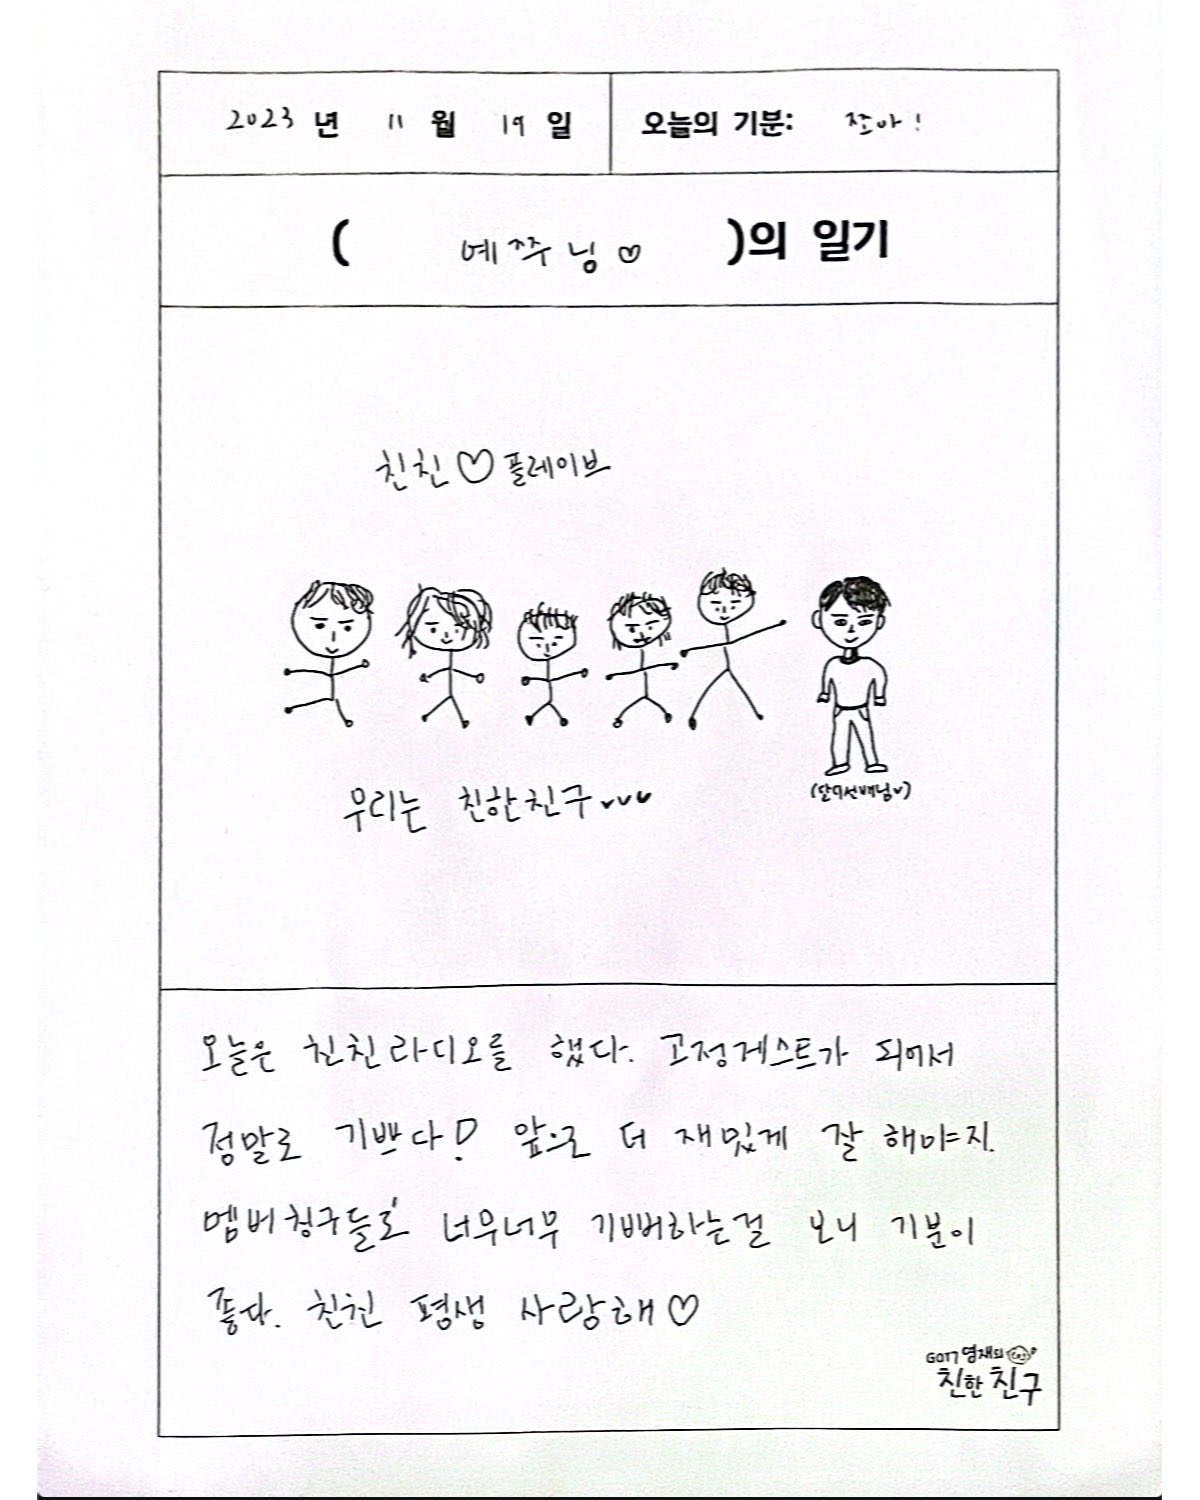 2023 년 11 월 19 일
오늘의 기분: 쪼아!
( 예쮸닝♡ )의 일기
친친♡플레이브
우리는 친한친구
오늘은 친친라디오를 했다. 고정게스트가 되어서
정말로 기쁘다! 앞으로 더 재밌게 잘 해야지.
멤버칭구들도 너무너무 기뻐하는걸 보니 기분이
좋다. 친친 평생 사랑해♡
GOT7 영재의
친한친구